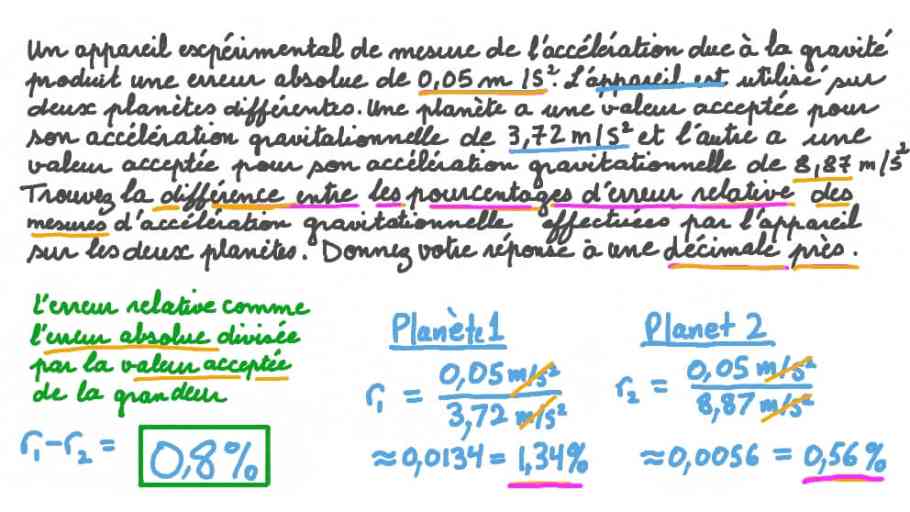 Un appareil expérimental de mesure de l'accélération due à la gravité
produit une erreur absolue de 0,05 m/s². L'appareil est utilisé sur
deux planètes différentes. Une planète a une valeur acceptée pour
son accélération gravitationnelle de 3,72 m/s² et l'autre a une
valeur acceptée pour son accélération gravitationnelle de 8,87 m/s²
Trouvez la différence entre les pourcentages d'erreur relative des
mesures d'accélération gravitationnelle effectuées par l'appareil
sur les deux planètes. Donnez votre réponse à une décimale près.
L'erreur relative comme
l'erreur absolue divisée
par la valeur acceptée
de la grandeur
r₁-r₂ = 0,8%
Planète 1
r₁ = 0,05 m/s² / 3,72 m/s²
≈ 0,0134 = 1,34%
Planet 2
r₂ = 0,05 m/s² / 8,87 m/s²
≈ 0,0056 = 0,56%